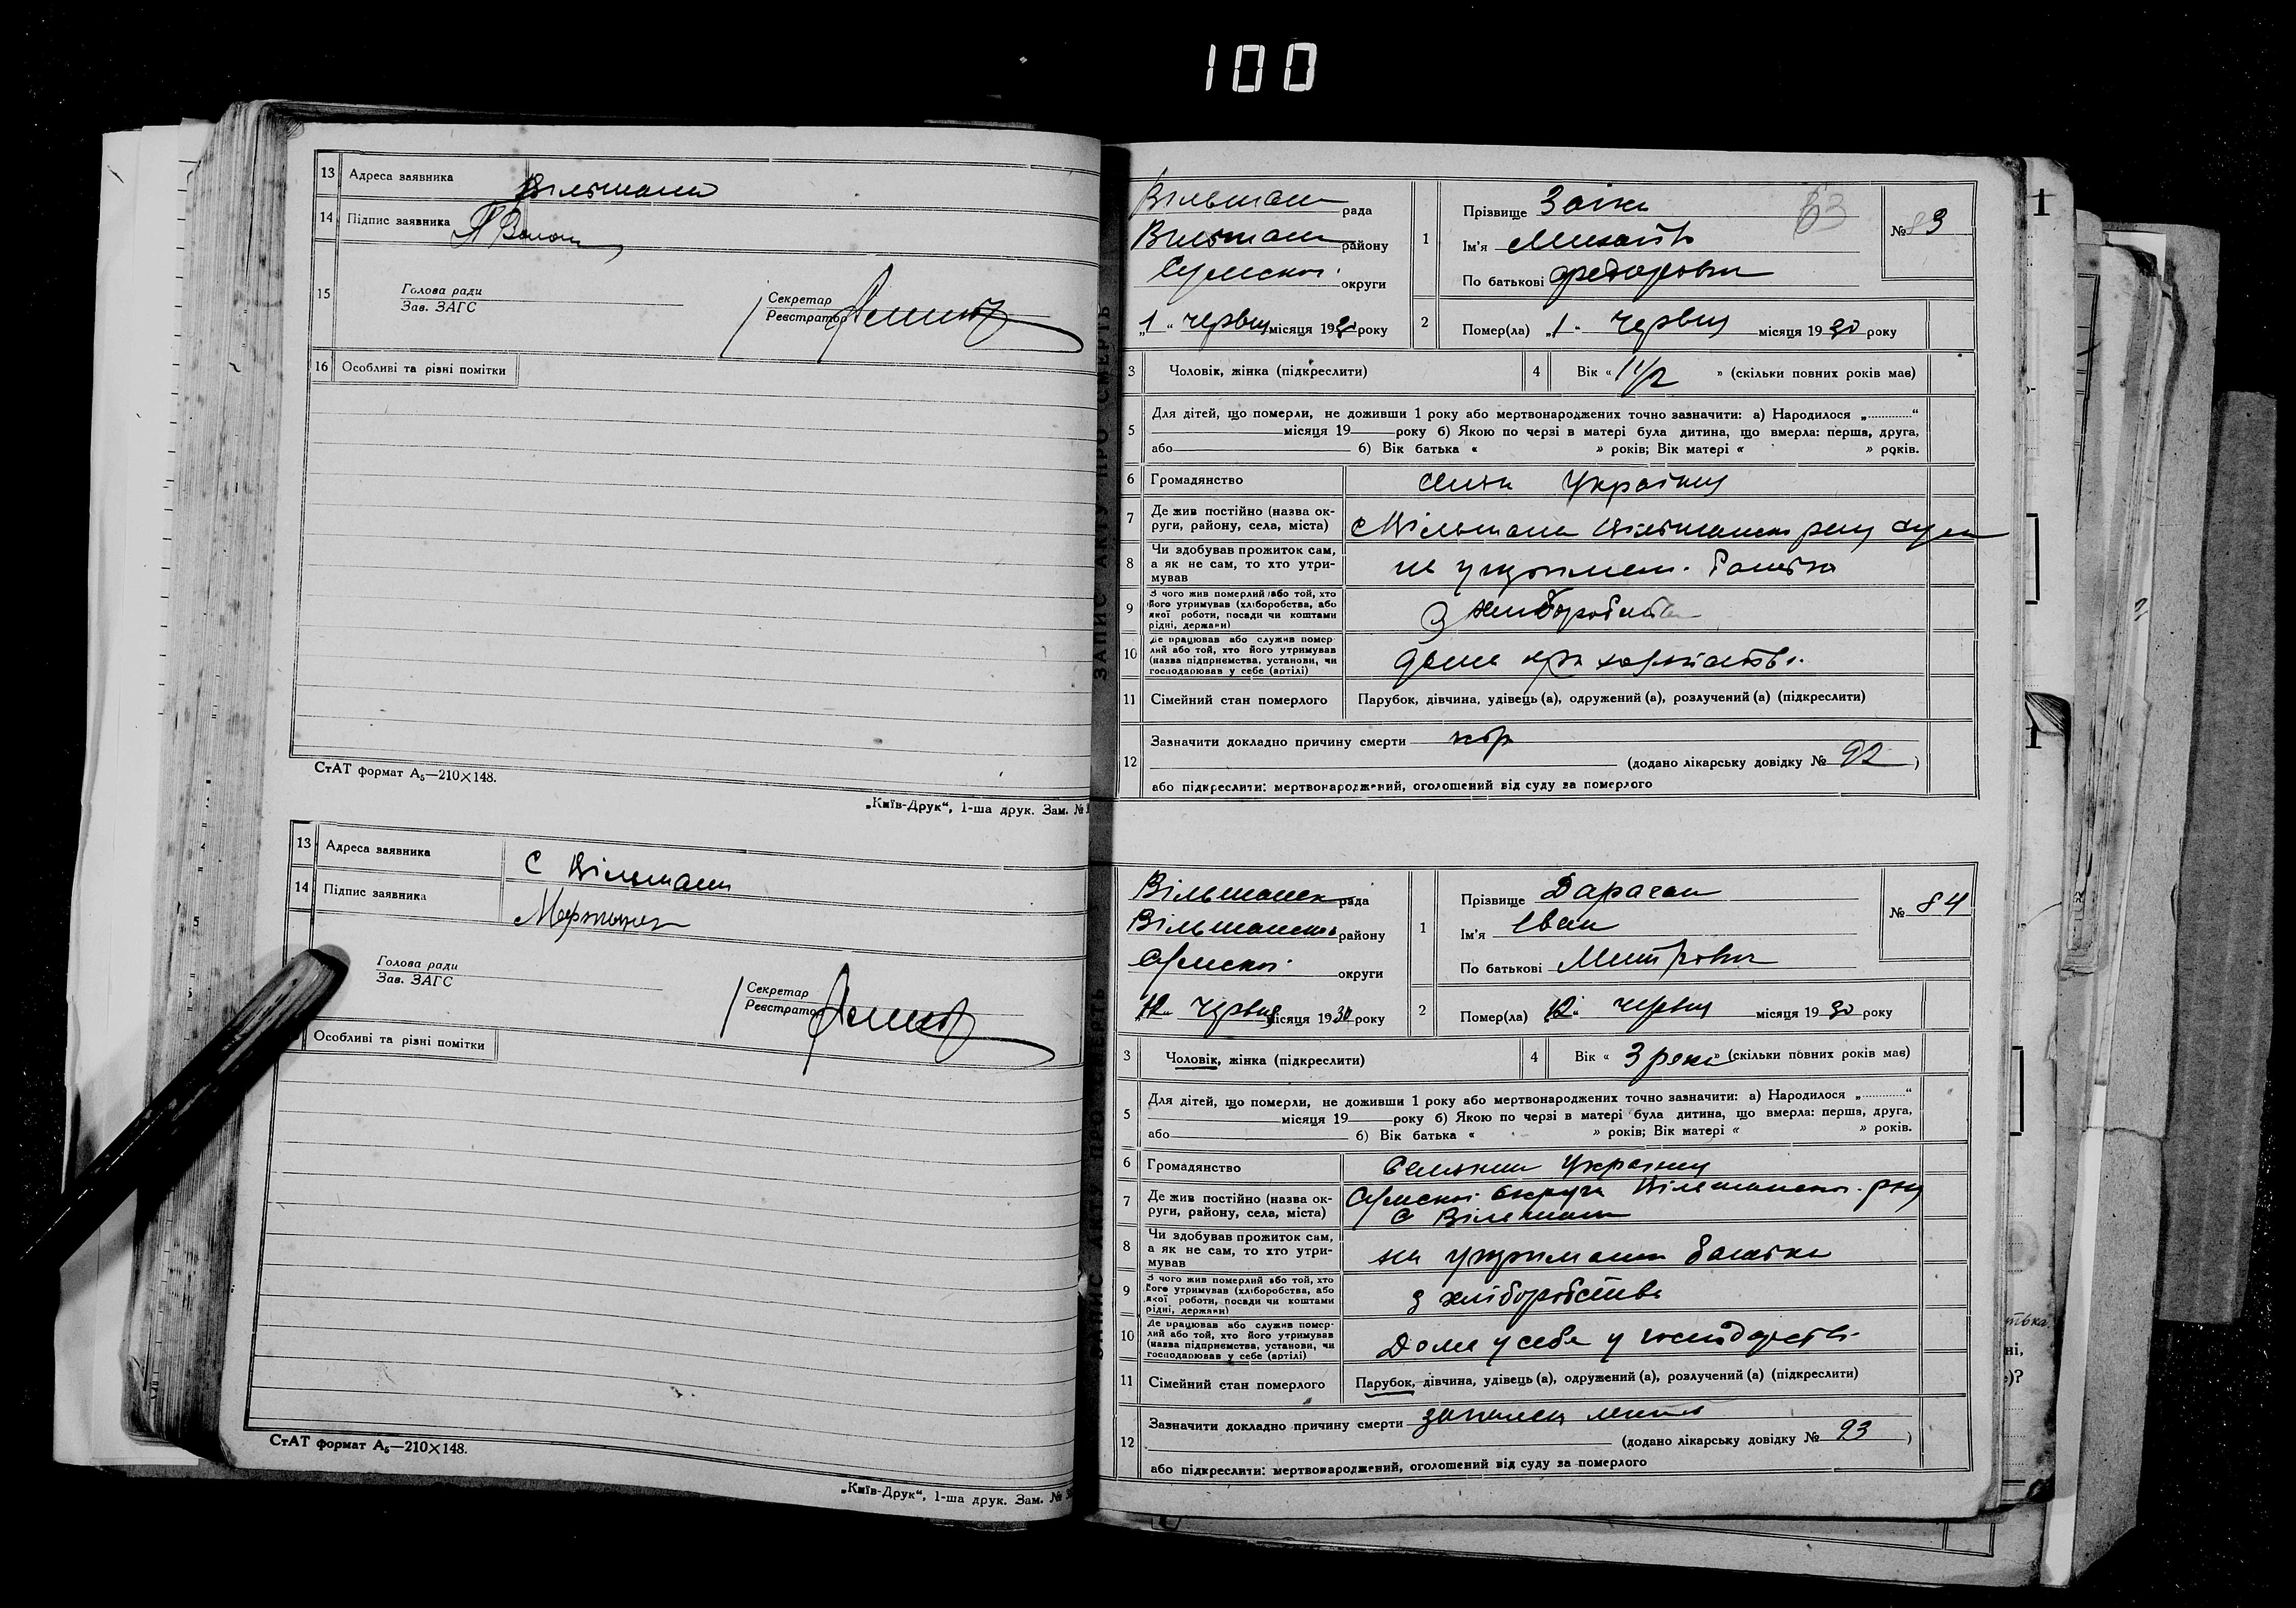 100
13 Адреса заявника Вільшани
14 Підпис заявника
15 Голова ради
Зав. ЗАГС
Секретар
Реєстратор
16 Особливі та різні помітки
СтАТ формат А₅—210×148.
„Київ-Друк“, 1-ша друк. Зам. №
13 Адреса заявника С Вільшани
14 Підпис заявника
Голова ради
Зав. ЗАГС
Секретар
Реєстратор
Особливі та різні помітки
СтАТ формат А₅—210×148.
„Київ-Друк“, 1-ша друк. Зам. №
ЗАПИС АКТУ ПРО СМЕРТЬ
Вільшан рада
Вільшан району
Сумської округи
„1“ червня місяця 1930 року
1 Прізвище Заіка 63
Ім'я Михайло
По батькові Федорович
№ 83
2 Помер(ла) „1“ червня місяця 1930 року
3 Чоловік, жінка (підкреслити)
4 Вік « 1 1/2 » (скільки повних років має)
5 Для дітей, що померли, не доживши 1 року або мертвонароджених точно зазначити: а) Народилося „............“
місяця 19 року б) Якою по черзі в матері була дитина, що вмерла: перша, друга,
або б) Вік батька « » років; Вік матері « » років.
6 Громадянство України
7 Де жив постійно (назва округи, району, села, міста) с Вільшана
8 Чи здобував прожиток сам, а як не сам, то хто утримував на батька
9 З чого жив померлий або той, хто його утримував (хліборобства, або якої роботи, посади чи коштами рідні, держави) З хліборобства
10 Де працював або служив померлий або той, хто його утримував (назва підприємства, установи, чи господарював у себе (артілі) дома при
11 Сімейний стан померлого Парубок, дівчина, удівець (а), одружений (а), розлучений (а) (підкреслити)
12 Зазначити докладно причину смерти кір
(додано лікарську довідку № 92 )
або підкреслити: мертвонароджений, оголошений від суду за померлого
Вільшанськ рада
Вільшансько району
Сумської округи
„12“ червня місяця 1930 року
1 Прізвище Дараган
Ім'я Іван
По батькові Митрович
№ 84
2 Помер(ла) „12“ червня місяця 1930 року
3 Чоловік, жінка (підкреслити)
4 Вік « 3 роки » (скільки повних років має)
5 Для дітей, що померли, не доживши 1 року або мертвонароджених точно зазначити: а) Народилося „............“
місяця 19 року б) Якою по черзі в матері була дитина, що вмерла: перша, друга,
або б) Вік батька « » років; Вік матері « » років.
6 Громадянство України
7 Де жив постійно (назва округи, району, села, міста) Сумської округи Вільшанськ. р-ну
с Вільшани
8 Чи здобував прожиток сам, а як не сам, то хто утримував на утриманні батька
9 З чого жив померлий або той, хто його утримував (хліборобства, або якої роботи, посади чи коштами рідні, держави) з хліборобства
10 Де працював або служив померлий або той, хто його утримував (назва підприємства, установи, чи господарював у себе (артілі) Дома у себе у господарстві
11 Сімейний стан померлого Парубок, дівчина, удівець (а), одружений (а), розлучений (а) (підкреслити)
12 Зазначити докладно причину смерти запалення
(додано лікарську довідку № 93 )
або підкреслити: мертвонароджений, оголошений від суду за померлого